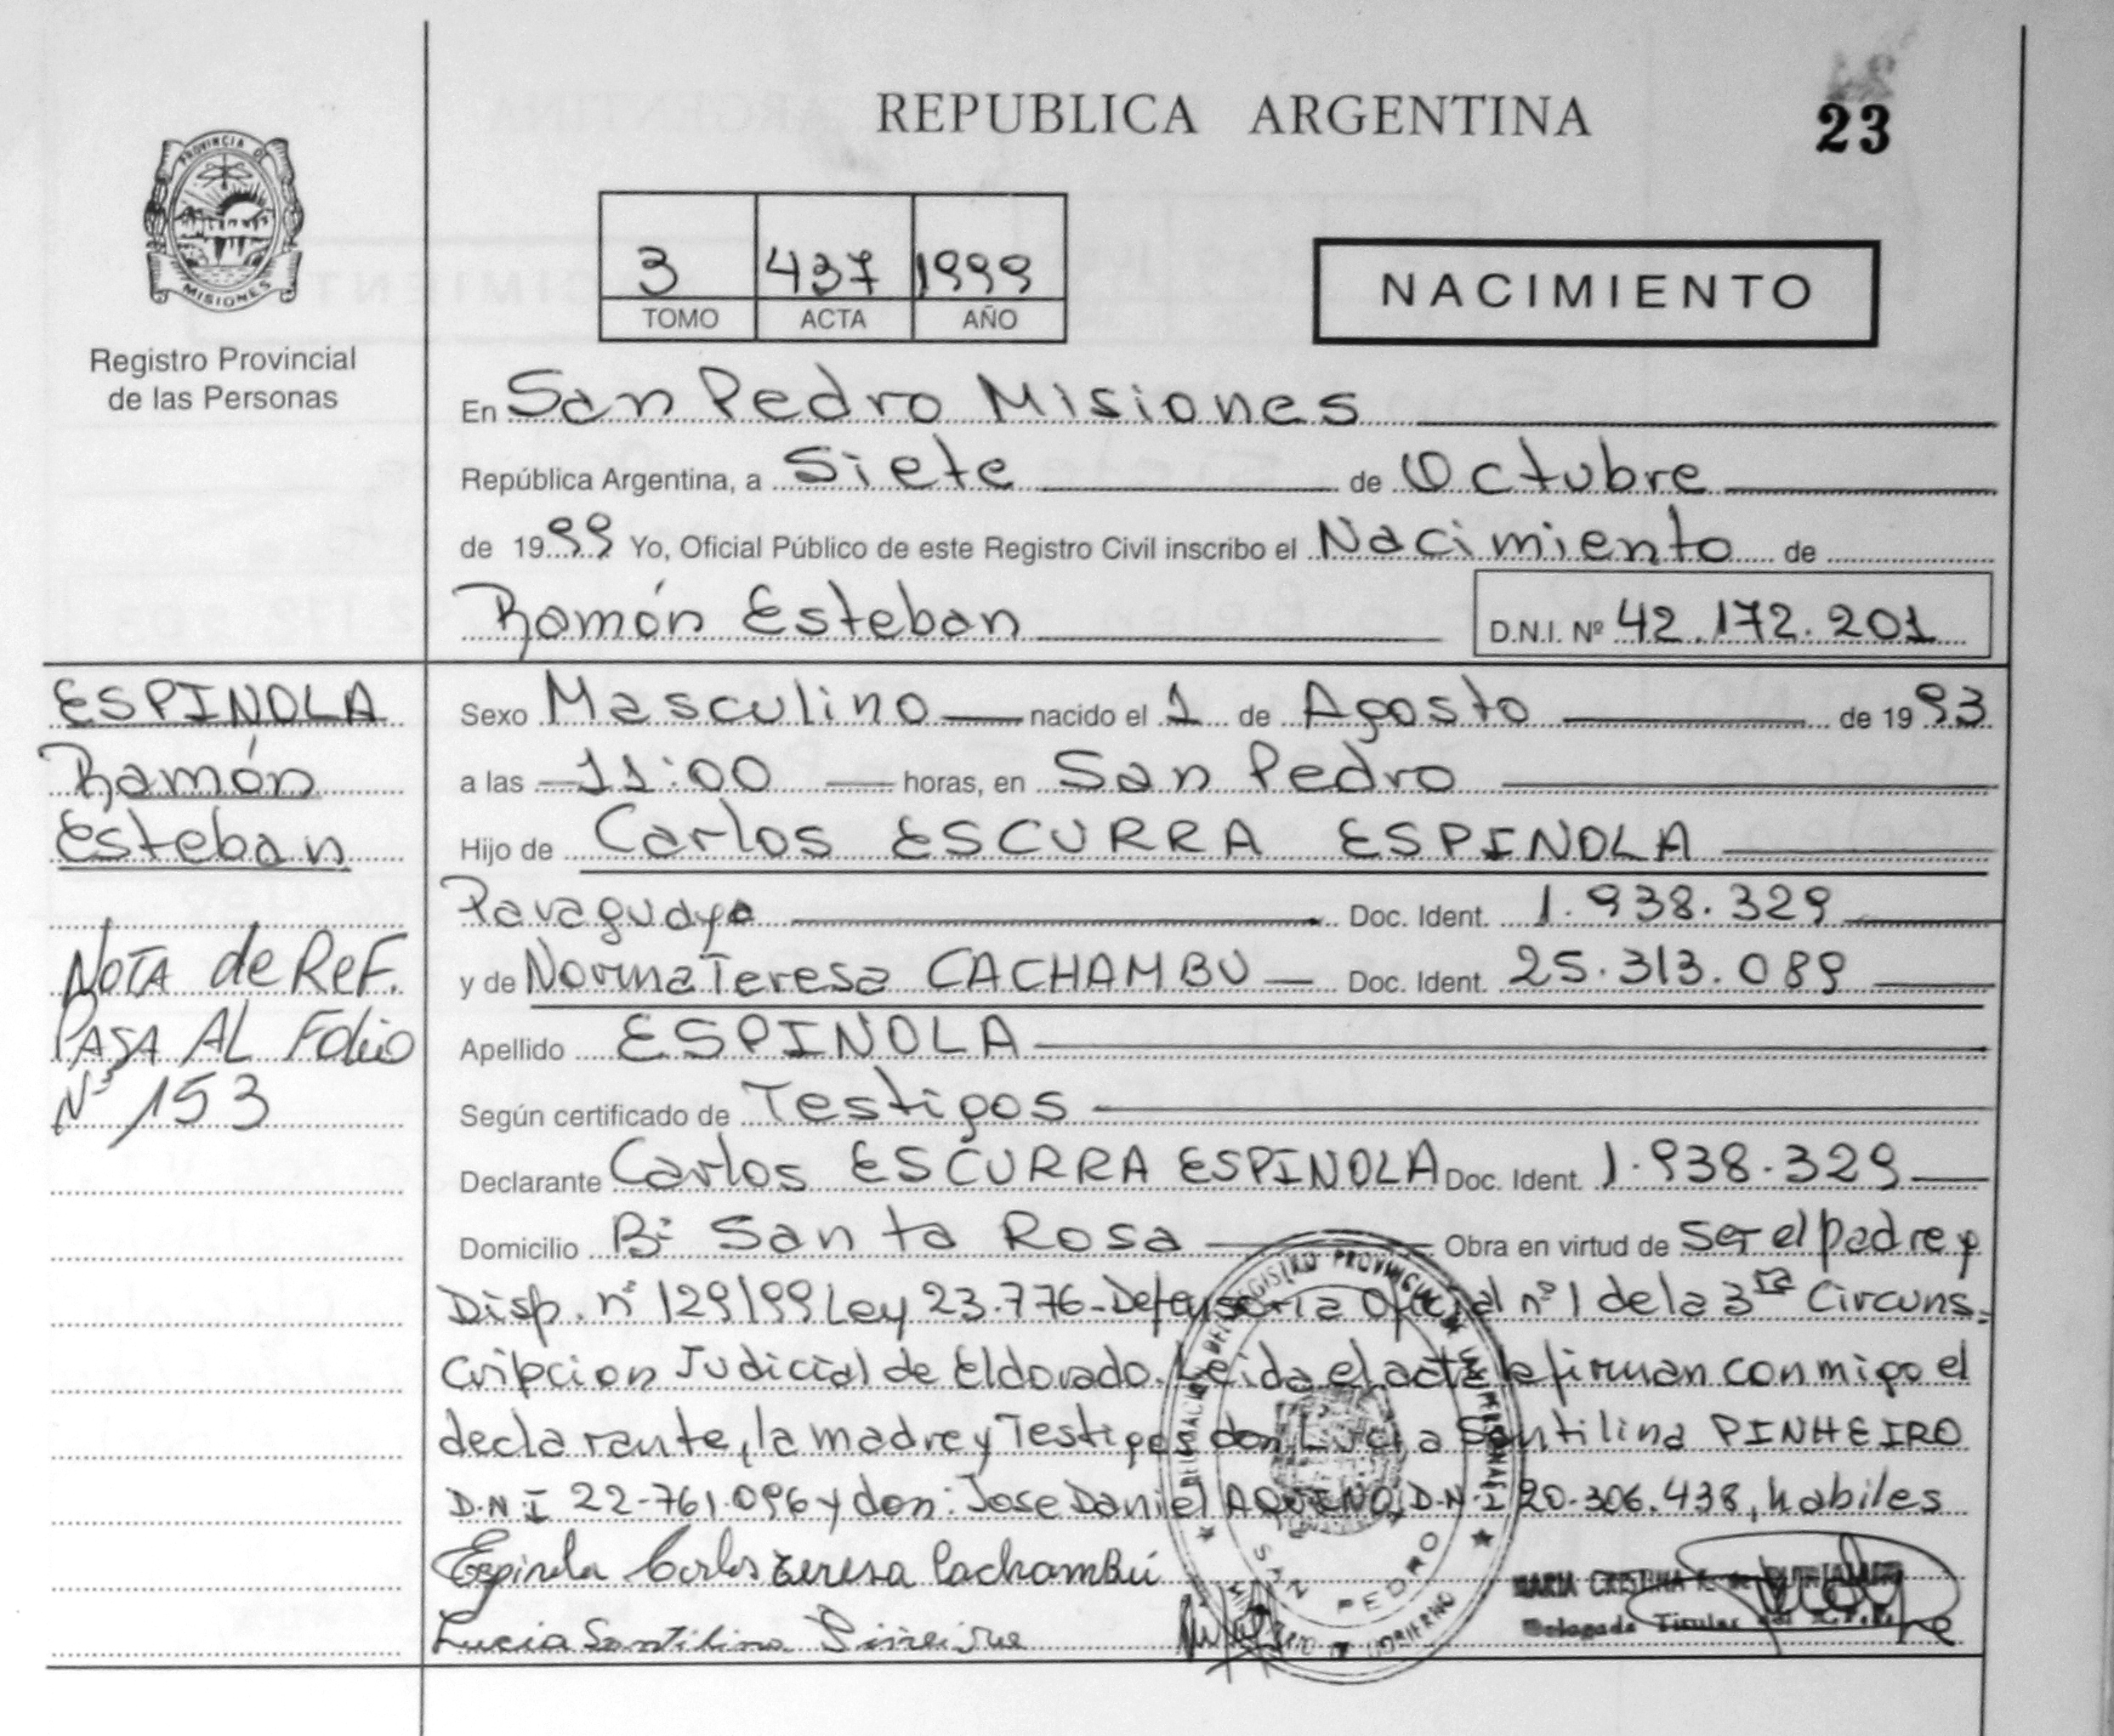 REPUBLICA ARGENTINA
23
PROVINCIA DE
MISIONES
Registro Provincial
de las Personas
3 437 1999
TOMO ACTA AÑO
NACIMIENTO
En San Pedro Misiones
República Argentina, a Siete de Octubre
de 1999 Yo, Oficial Público de este Registro Civil inscribo el Nacimiento de
Ramón Esteban D.N.I. Nº 42.172.201
ESPINOLA
Ramón
Esteban
NOTA de ReF.
PASA AL Folio
Nº 153
Sexo Masculino nacido el 1 de Agosto de 1993
a las 11:00 horas, en San Pedro
Hijo de Carlos ESCURRA ESPINOLA
Paraguayo Doc. Ident. 1.938.329
y de Norma Teresa CACHAMBU Doc. Ident. 25.313.089
Apellido ESPINOLA
Según certificado de Testigos
Declarante Carlos ESCURRA ESPINOLA Doc. Ident. 1.938.329
Domicilio Bº Santa Rosa Obra en virtud de ser el padre y
Disp. nº 129/99 Ley 23.776-Defensoria Oficial nº 1 de la 3ra Circuns-
cripcion Judicial de Eldorado. Leida el acta la firman conmigo el
declarante, la madre y Testigos don Lucia Santilina PINHEIRO
D.N.I 22-761.096 y don: Jose Daniel AQUINO, D.N.I 20-306.438, habiles
Espinola Carlos Teresa Cachambú
Lucia Santilina Piñeiro
MARIA CRISTINA
Delegada Titular del R.P.P.
DELEGACION DEL REGISTRO PROVINCIAL DE LAS PERSONAS
SAN PEDRO
MINISTERIO DE GOBIERNO